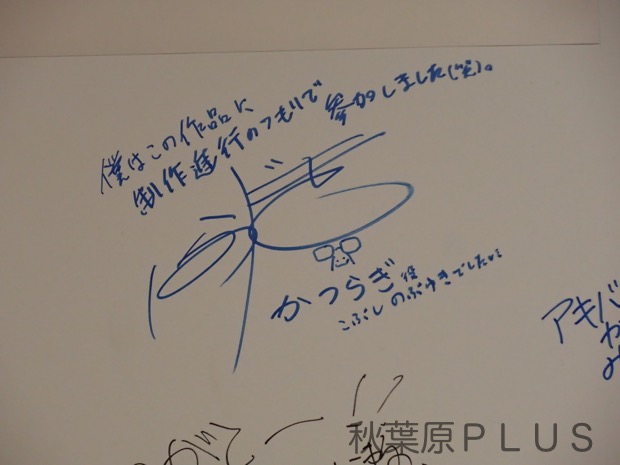 僕はこの作品に
制作進行のつもりで
参加しました(笑)。
かつらぎ役
こぶしのぶゆきでした
アキバ
秋葉原PLUS